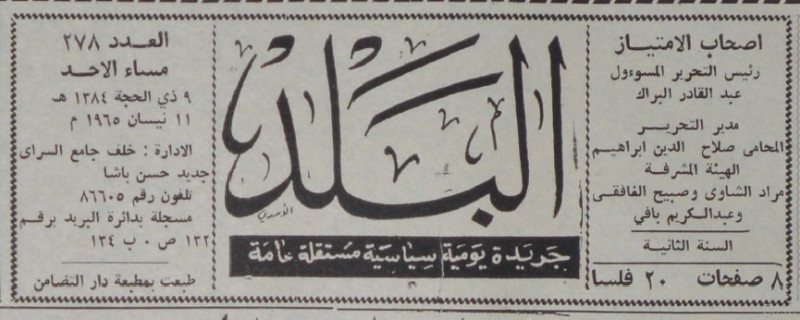 اصحاب الامتياز
رئيس التحرير المسوءول
عبد القادر البراك
مدير التحرير
المحامى صلاح الدين ابراهيم
الهيئة المشرفة
مراد الشاوى وصبيح الغافقى
وعبدالكريم يافي
السنة الثانية
٨ صفحات ٢٠ فلسا
البلد
الأسدي
جريدة يومية سياسية مستقلة عامة
العدد ٢٧٨
مساء الاحد
٩ ذي الحجة ١٣٨٤ هـ
١١ نيسان ١٩٦٥ م
الادارة : خلف جامع السراى
جديد حسن باشا
تلفون رقم ٨٦٦٠٥
مسجلة بدائرة البريد برقم
١٣٢ ص ٠ ب ١٣٤
طبعت بمطبعة دار التضامن